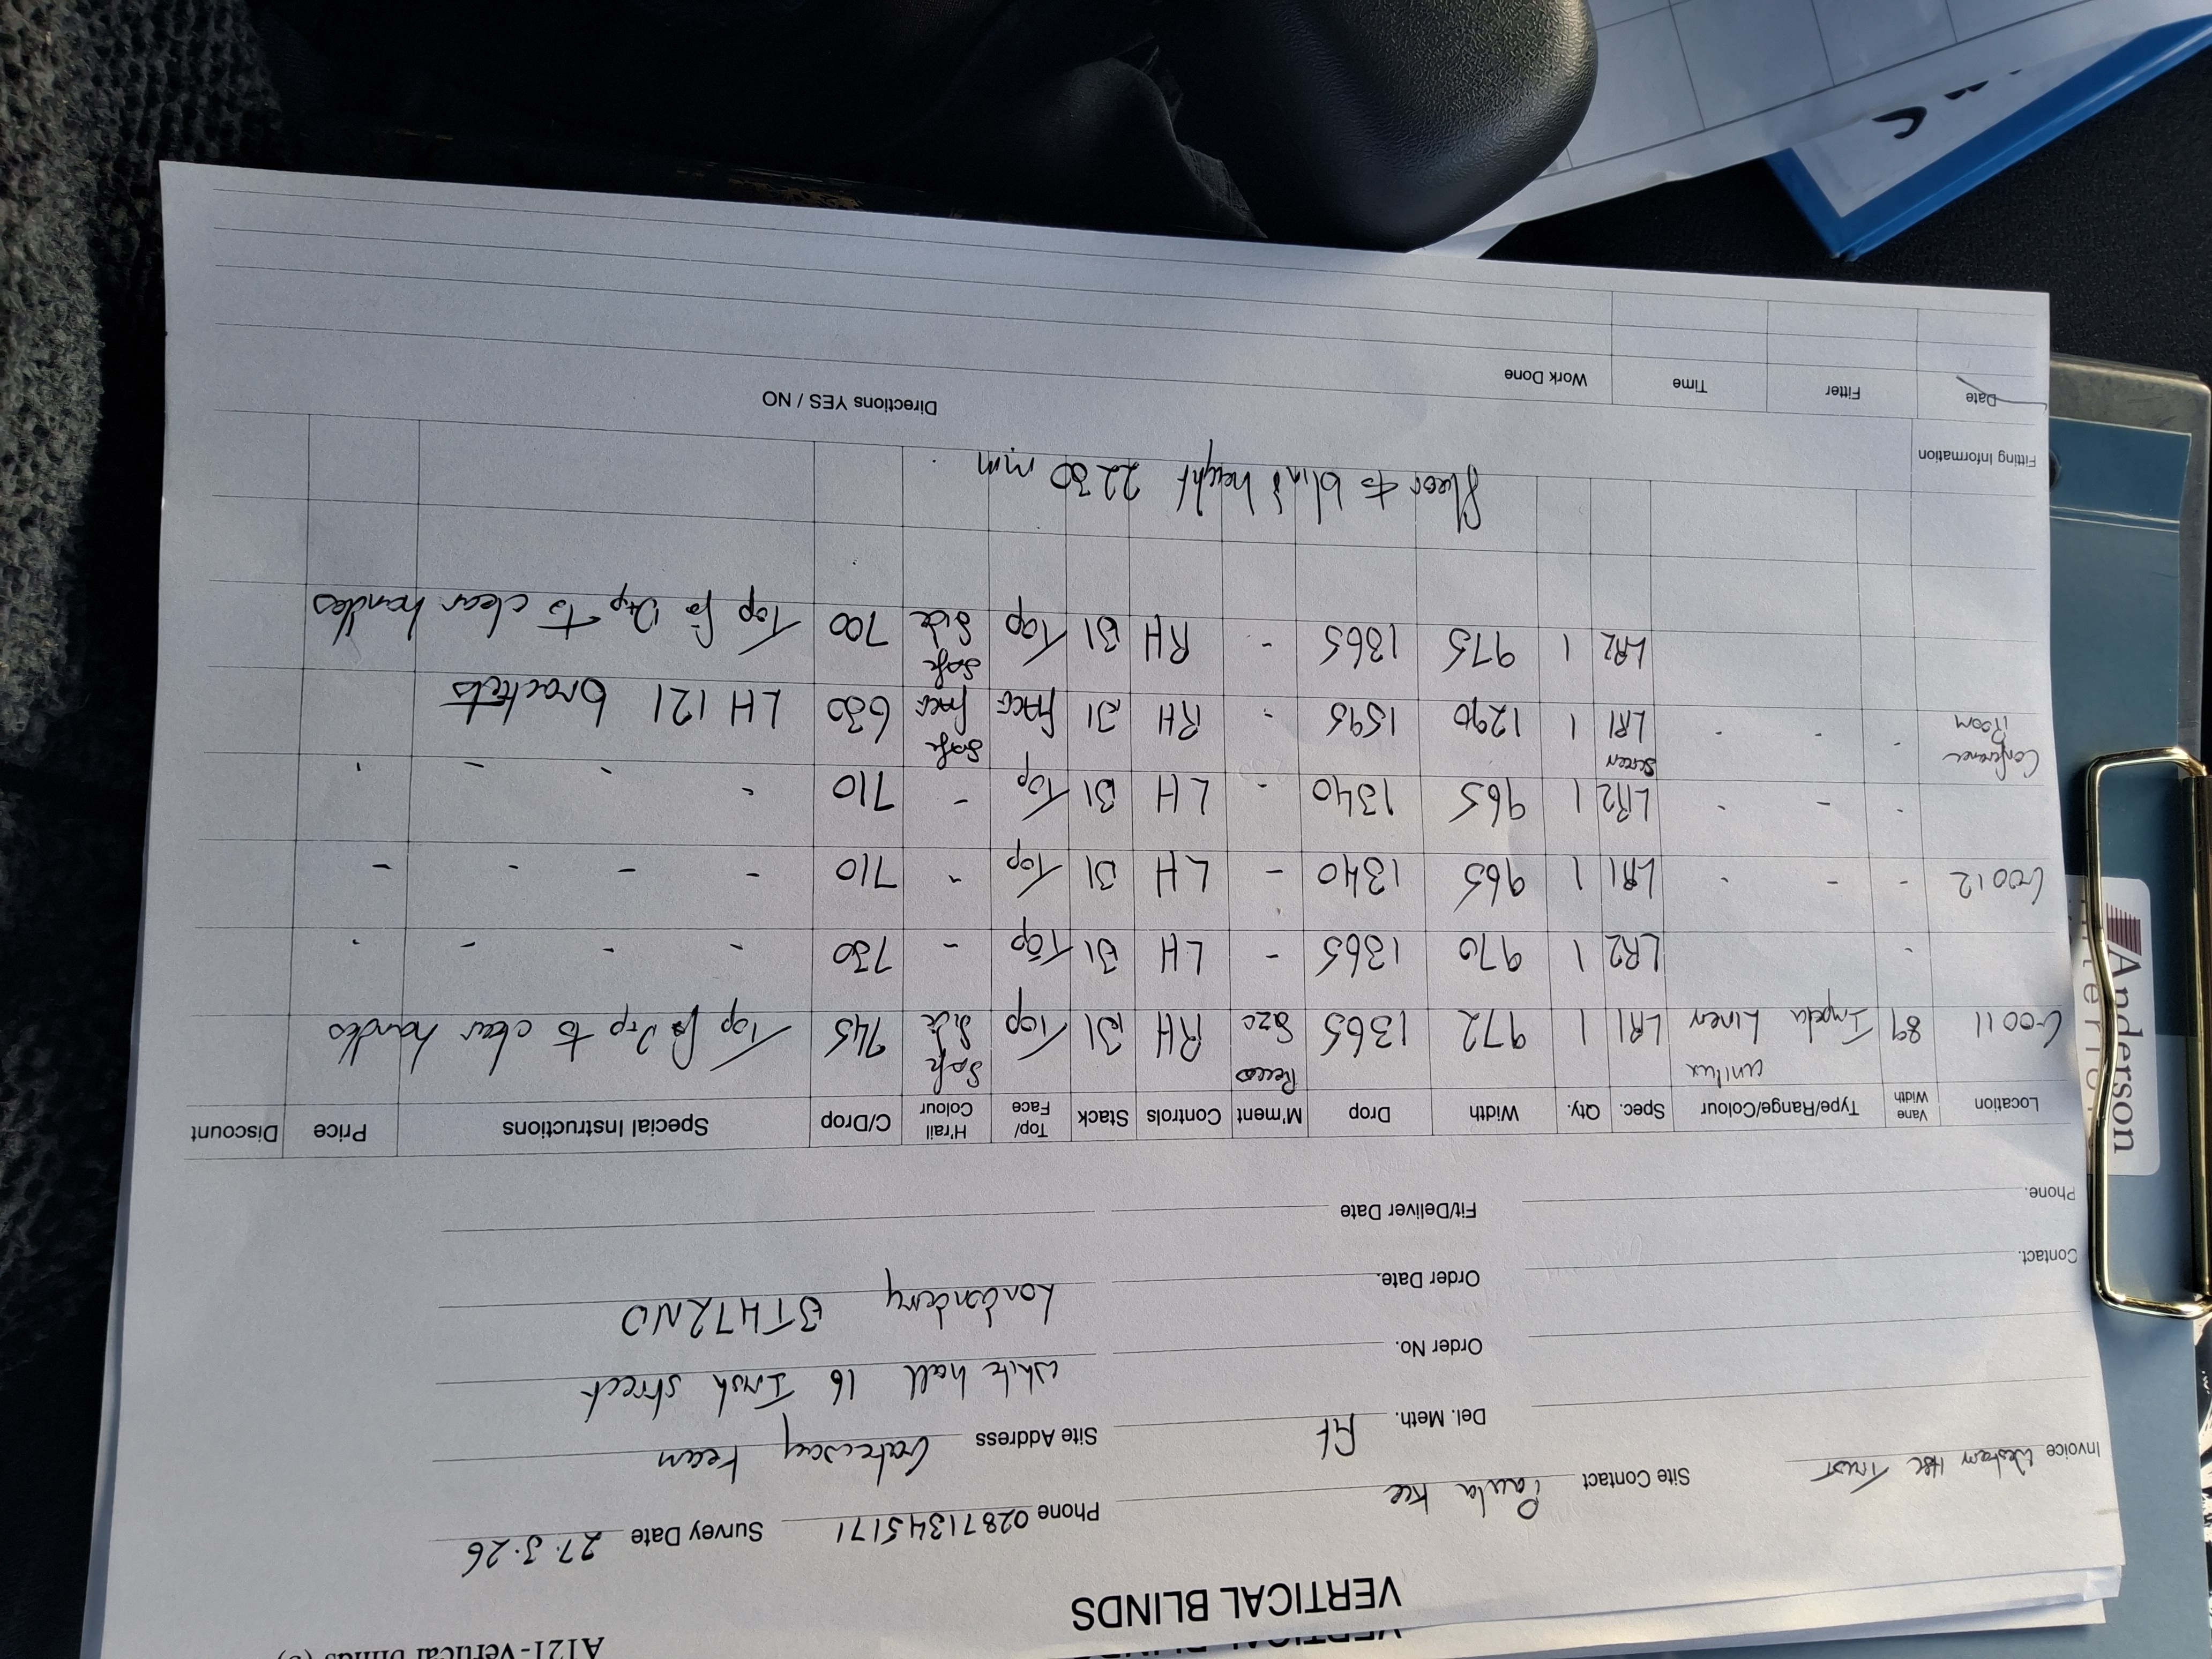 A121-Vertical Blinds
VERTICAL BLINDS
Invoice Western H&C Trust Site Contact Paula Kee Phone 02871345171 Survey Date 27.3.26
Del. Meth. RF Site Address Gateway Team
Order No. White hall 16 Irish street
Contact. Order Date. Londonderry BT472ND
Phone. Fit/Deliver Date
Location Vane Width Type/Range/Colour Spec. Qty. Width Drop M'ment Controls Stack Top/Face H'rail Colour C/Drop Special Instructions Price Discount
G0011 89 Unilux Impala Linen LR1 1 972 1365 Recess Size RH B1 Top Safe Side 745 Top fix Drp to clear handles
" LR2 1 970 1365 - LH B1 Top - 730 - - - -
G0012 - - - LR1 1 965 1340 - LH B1 Top - 710 - - - - -
- - - LR2 1 965 1340 - LH B1 Top - 710 - - - -
Conference Room - - - Screen LR1 1 1290 1595 - RH B1 FACE Safe FACE 630 LH 121 brackets
LR2 1 975 1365 - RH B1 Top Safe Side 700 Top fix Drp to clear handles
floor to blind height 2230 mm
Fitting Information Directions YES / NO
Date Fitter Time Work Done
Anderson
interiors